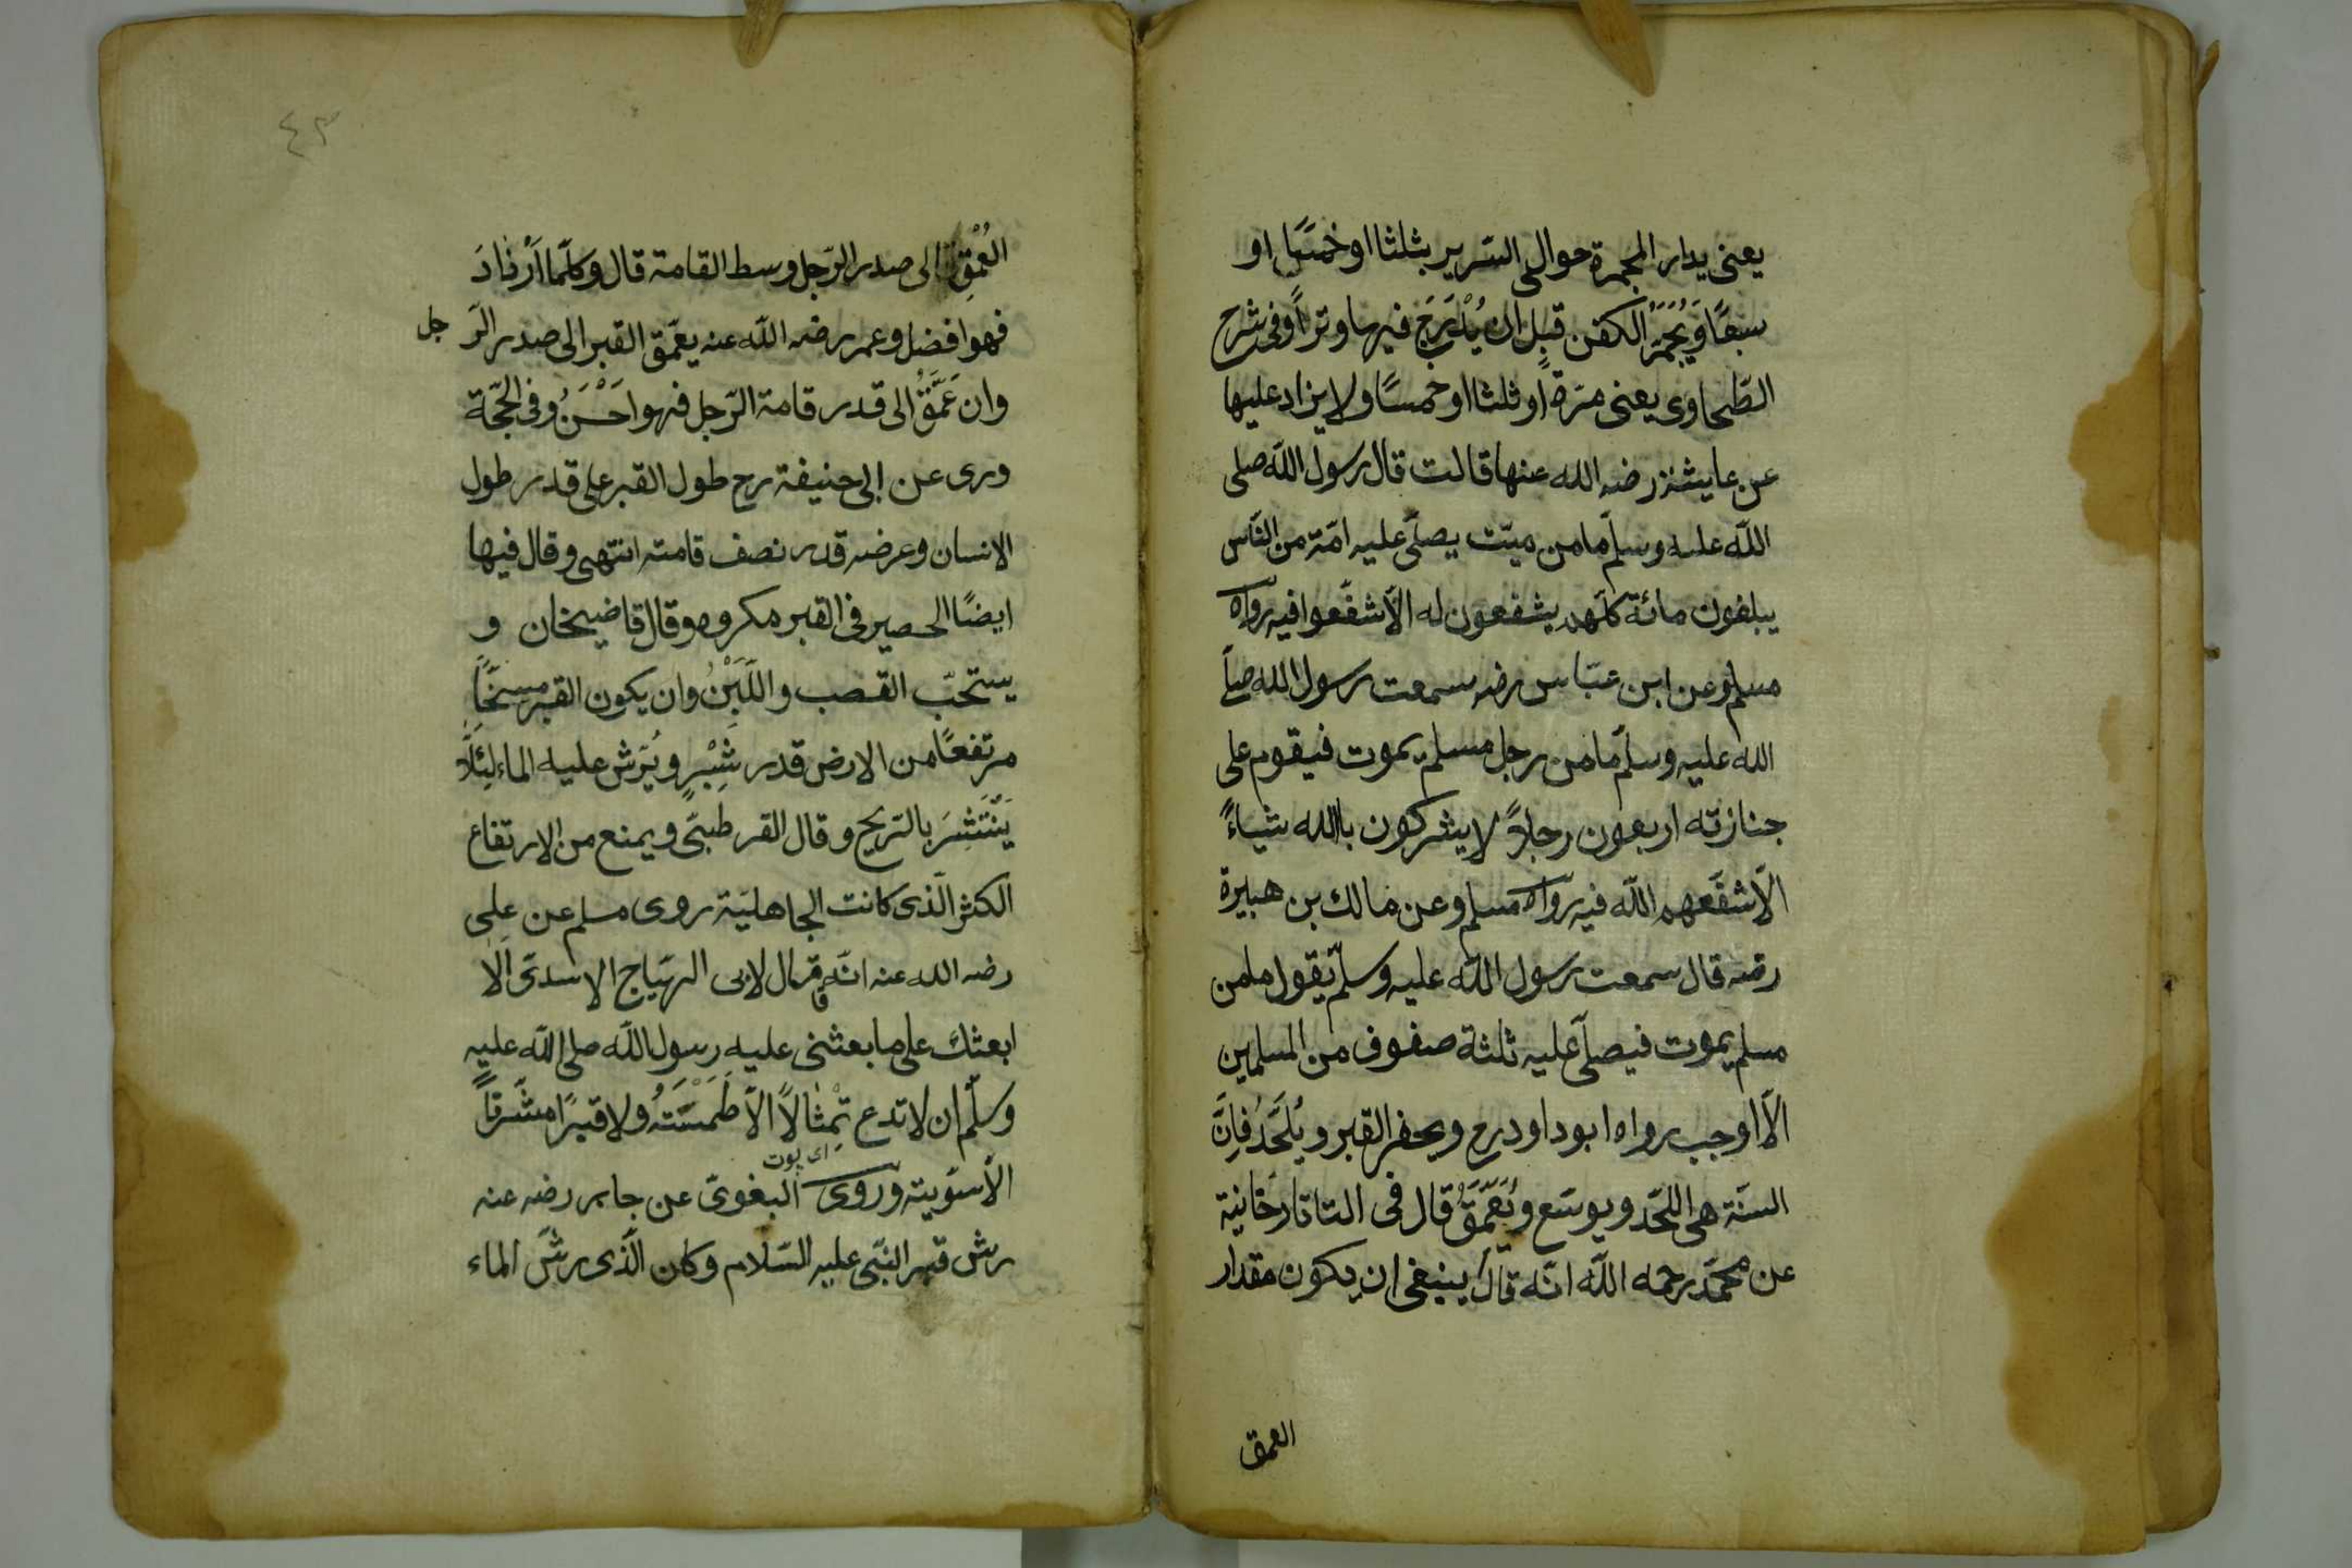 يعنى يدار المجمرة حوالى السّرير بثلثا او خمسًا او
سبعًا وَيُجَمَّرُ الكفن قبل ان يُدْرَجَ فيها وترًا وفى شرح
الطّحاوى يعنى مرّة او ثلثا او خمسًا ولا يزاد عليها
عن عايشة رضه الله عنها قالت قال رسول اللّه صلى
اللّه عليه وسلّم ما من ميّت يصلّى عليه امّة من النّاس
يبلغون مائة كلّهم يشفعون له الّا شفّعوا فيه رواه
مسلم وعن ابن عبّاس رضه سمعت رسول الله صلّى
الله عليه وسلّم ما من رجل مسلم يموت فيقوم على
جنازته اربعون رجلاً لا يشركون بالله شياءً
الّا شفّعهم اللّه فيه رواه مسلم وعن مالك بن هبيرة
رضه قال سمعت رسول اللّه عليه وسلّم يقول ما من
مسلم يموت فيصلّى عليه ثلثة صفوف من المسلمين
الّا اوجب رواه ابو داود رح ويحفر القبر ويُلَحَّدُ فَاِنَّ
السنّة هى اللّحد ويوسّع ويُعَمَّقُ قال فى التاتارخانية
عن محمّد رحمه اللّه انّه قال ينبغى ان يكون مقدار
العمق
٤٣
العُمْقِ الى صدر الرّجل وسط القامة قال وكلّما اَزْدَادَ
فهو افضل وعمر رضه اللّه عنه يعمّق القبر الى صدر الرّ جل
وان عَمَّقَ الى قدر قامة الرّجل فهو اَحْسَنُ وفى الحجّة
وروى عن ابى حنيفة رح طول القبر على قدر طول
الانسان وعرضه قدر نصف قامته انتهى وقال فيها
ايضًا الحصير فى القبر مكروه وقال قاضيخان و
يستحبّ القصب واللَّبِنْ وان يكون القبر مسنّمًا
مرتفعًا من الارض قدر شِبْرٍ ويُرَشّ عليه الماء لِئَلَّا
يَنْتَشِرَ بالرّيح وقال القرطبىّ ويمنع من الارتفاع
الكثر الّذى كانت الجاهليّة روى مسلم عن على
رضه الله عنه انّه قال لابى الهيّاج الاسدىّ اَلا
ابعثك على ما بعثنى عليه رسول اللّه صلى اللّه عليه
وسلّم ان لا تدع تِمْثالاً الّا طَمَسْتَهُ ولا قبرًا مشرفاً
اى پوت
الّا سوّيته وروى البغوىّ عن جابر رضه عنه
رش قبر النّبى عليه السّلام وكان الّذى رشّ الماء